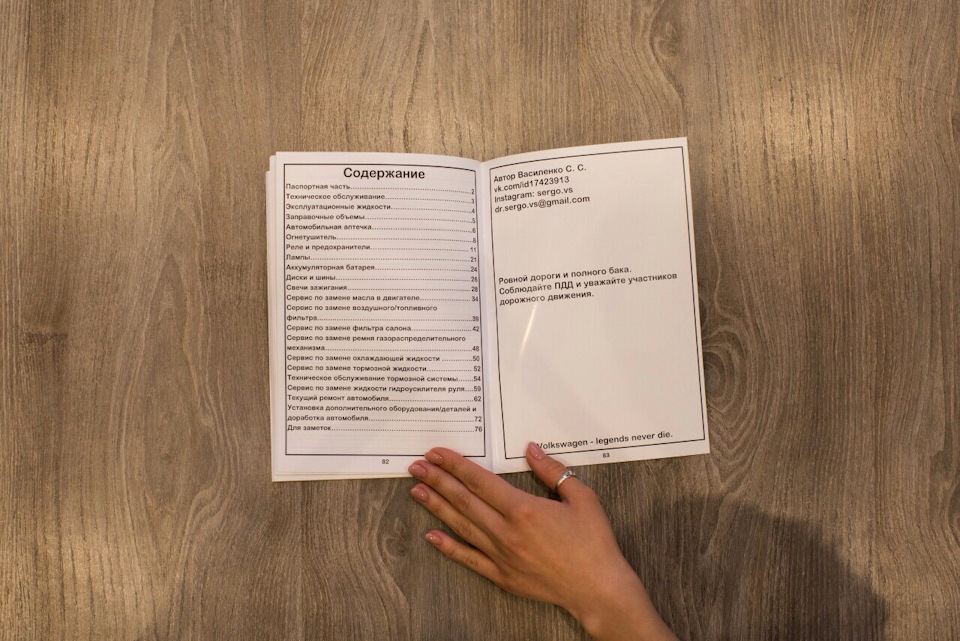 Содержание
Паспортная часть 2
Техническое обслуживание 3
Эксплуатационные жидкости 4
Заправочные объемы 5
Автомобильная аптечка 6
Огнетушитель 8
Реле и предохранители 11
Лампы 21
Аккумуляторная батарея 24
Диски и шины 26
Свечи зажигания 28
Сервис по замене масла в двигателе 34
Сервис по замене воздушного/топливного
фильтра 39
Сервис по замене фильтра салона 42
Сервис по замене ремня газораспределительного
механизма 48
Сервис по замене охлаждающей жидкости 50
Сервис по замене тормозной жидкости 52
Техническое обслуживание тормозной системы 54
Сервис по замене жидкости гидроусилителя руля 59
Текущий ремонт автомобиля 62
Установка дополнительного оборудования/деталей и
доработка автомобиля 72
Для заметок 76
82
Автор Василенко С. С.
vk.com/id17423913
Instagram: sergo.vs
dr.sergo.vs@gmail.com
Ровной дороги и полного бака.
Соблюдайте ПДД и уважайте участников
дорожного движения.
Volkswagen - legends never die.
83